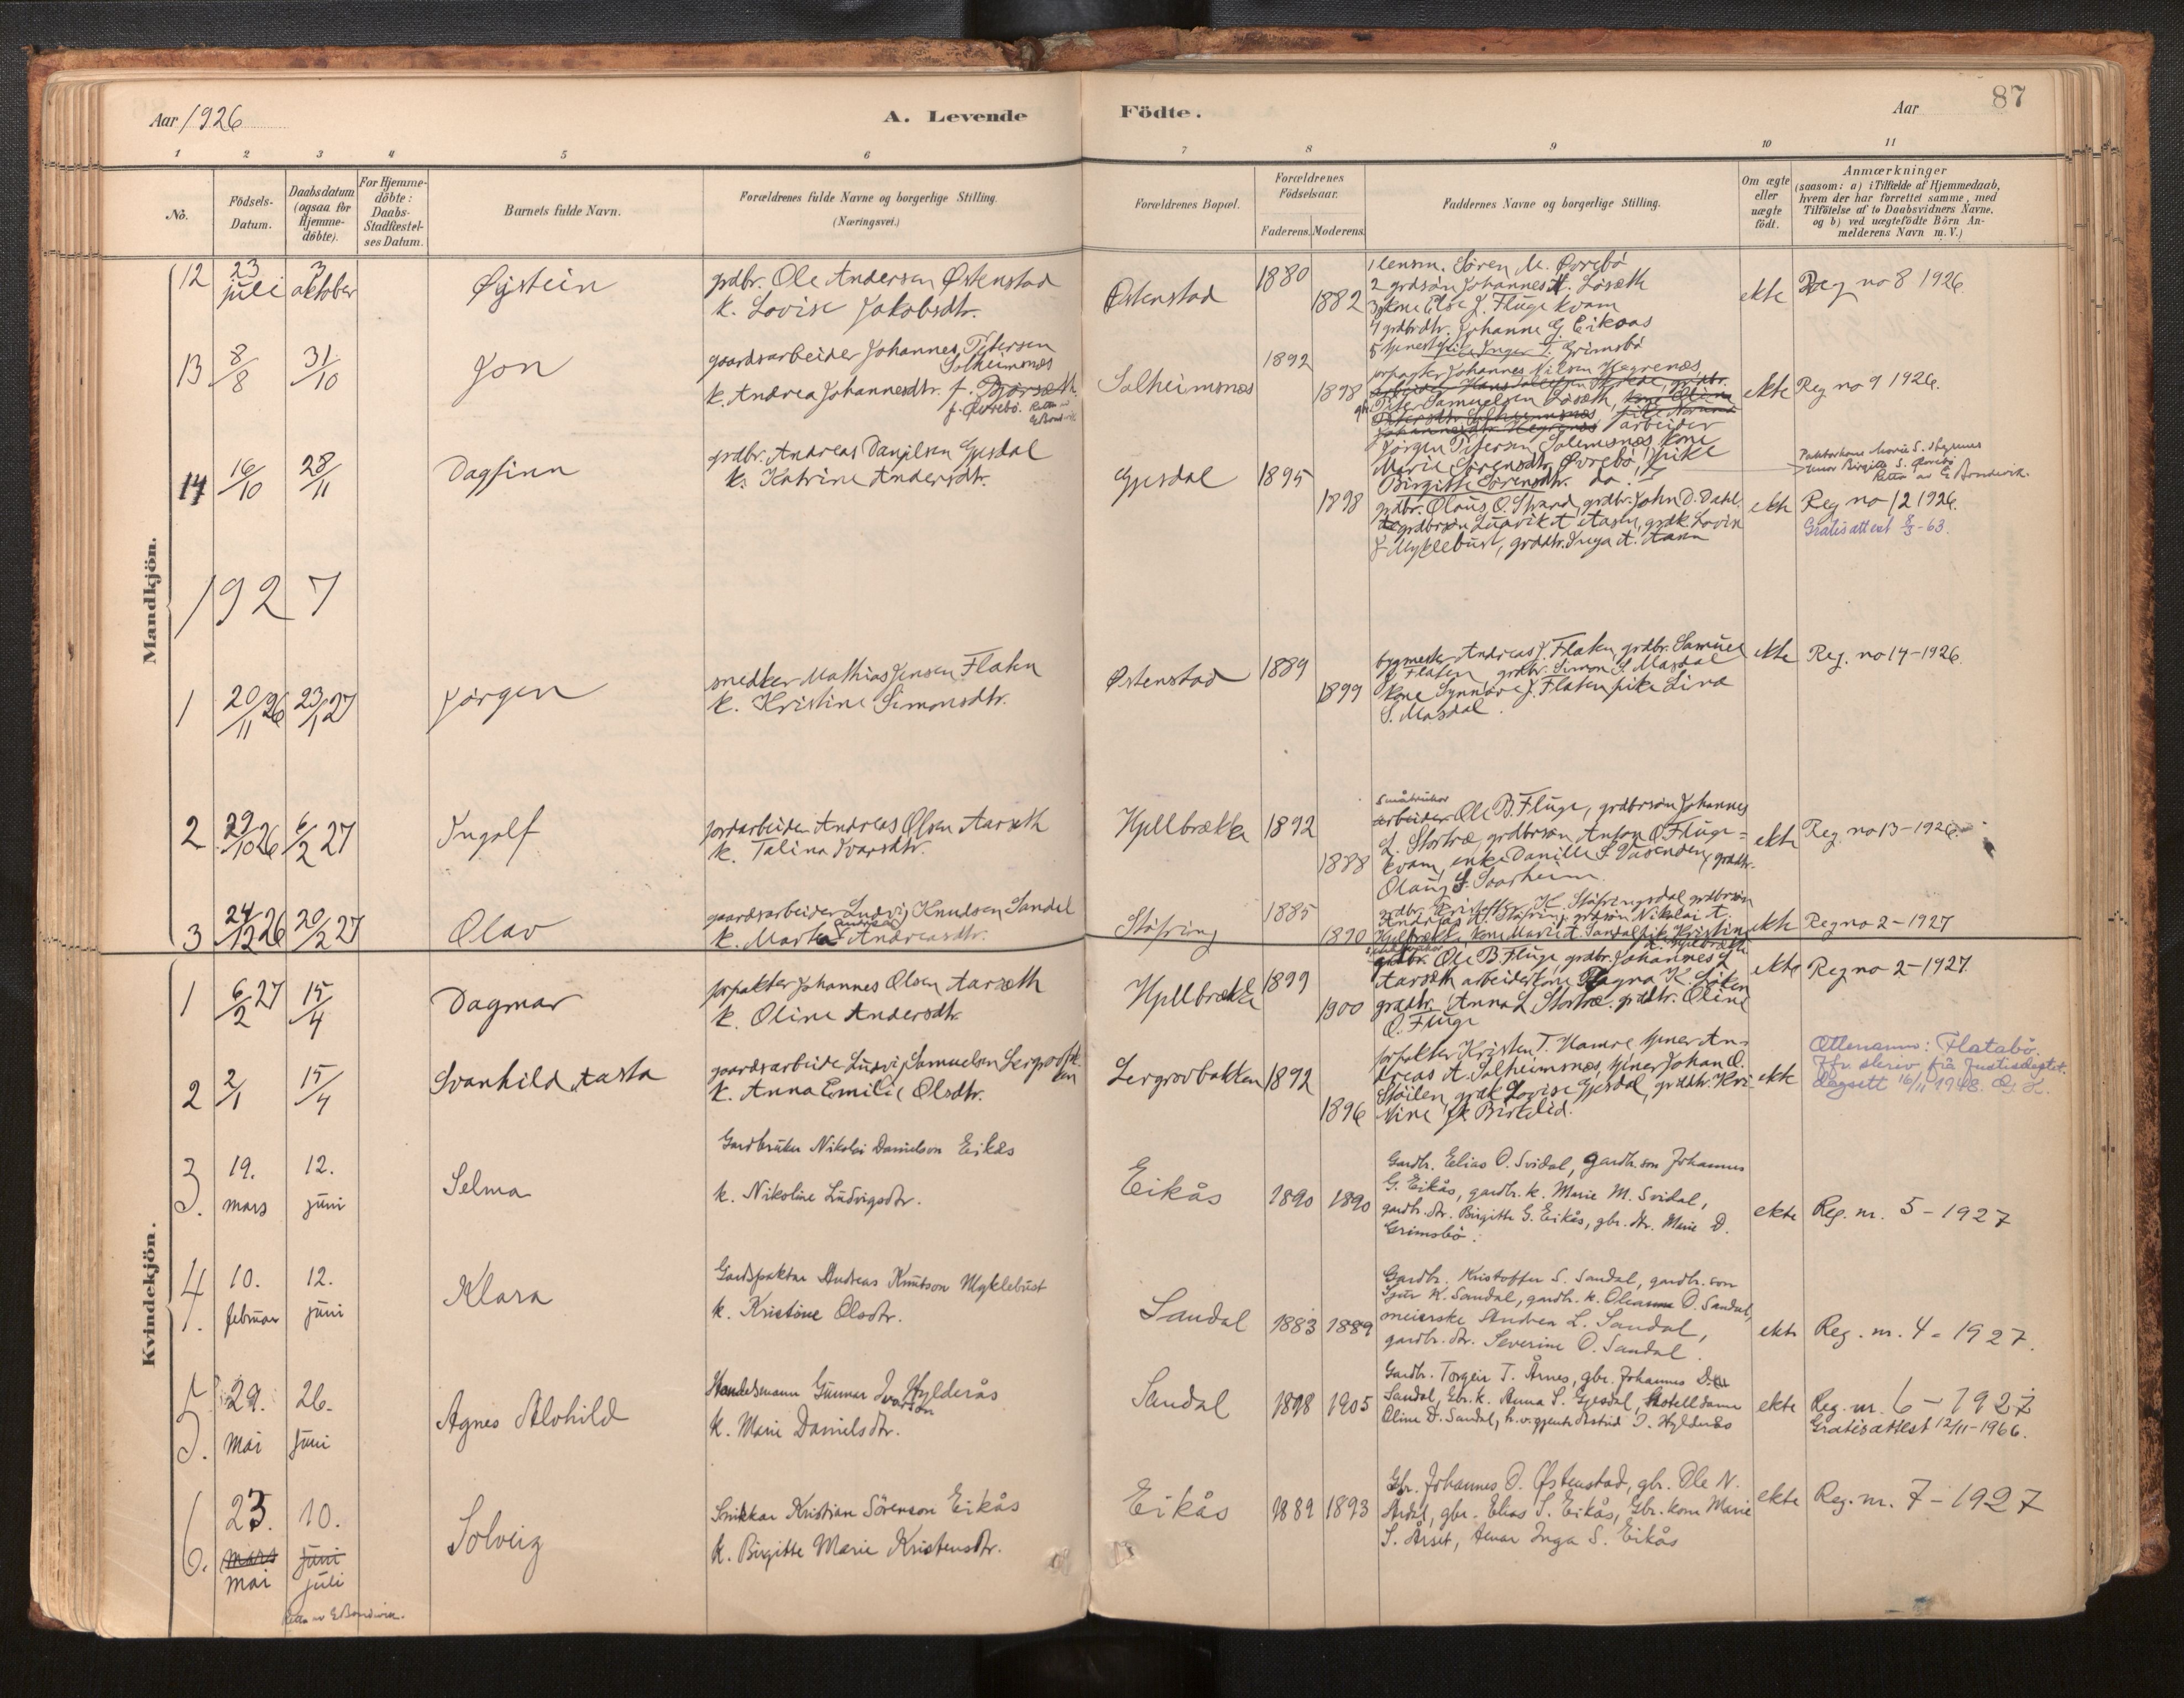 Aar 1926
A. Levende
Födte.
Aar
87
1 2 3 4 5 6 7 8 9 10 11
No.
Födsels-
Datum.
Daabsdatum
(ogsaa for
Hjemme-
döbte).
For Hjemme-
döbte:
Daabs-
Stadfæstel-
ses Datum.
Barnets fulde Navn.
Forældrenes fulde Navne og borgerlige Stilling.
(Næringsvei.)
Forældrenes Bopæl.
Forældrenes
Födselsaar.
Faderens. Moderens.
Faddernes Navne og borgerlige Stilling.
Om ægte
eller
uægte
födt.
Anmærkninger
(saasom: a) i Tilfælde af Hjemmedaab,
hvem der har forrettet samme, med
Tilföielse af to Daabsvidners Navne,
og b) ved uægtefödte Börn An-
melderens Navn m. V.)
Mandkjön.
12 23 juli 3 oktober Øystein
grdbr. Ole Andersen Østenstad
k. Lovise Jakobsdtr.
Østenstad 1880 1882
1 lensm. Sören M. Øvrebö
2 grdsön Johannes A. Löseth
3 kone Else J. Fluge kvam
4 grdbrdtr. Johanne G. Eikaas
5 Inger J. Grimsbö
ekte Reg no 8 1926
13 8/8 31/10 Jon
gaardsarbeider Johannes Petersen
Solheimsnes
k. Andrea Johannesdtr. f. Bjørseth
f. Øvrebö. Retta av
E Bondevik
Solheimsnes 1892 1898
forpagter Johannes Nilsen Hegrenæs,
Peter Samuelsen Löseth,
arbeider
Jörgen Petersen Solemsnes, kone
Marie Sörensdtr. Øvrebö, pike
Birgitte Sörensdtr. do.
ekte Reg no 9 1926.
Marie S. Hegrenes
Birgitte S. Øvrebö
Retta av E Bondevik.
14 16/10 28/11 Dagfinn
grdbr. Andreas Danielsen Gjesdal
k. Katrine Andersdtr.
Gjesdal 1895 1898
grdbr. Olaus O. Strand, grdbr. John D. Dahl
grdbrsön Ludvik A Aasen, grdk. Lovise
J Myklebust, grddtr. Inga A. Aasen
ekte Reg no 12 1926.
Gratisattest 8/3-63.
1927
1 20/11 26 23/1 27 Jörgen
snedker Mathias Jensen Flaten
k. Kristine Simonsdtr.
Østenstad 1889 1899
bygmester Andreas J. Flaten, grdbr. Samuel
J Flaten grdbr. Simon S Masdal
kone Synnöve J. Flaten pike Lina
S. Masdal.
ekte Reg. no 14-1926.
2 29/10 26 6/2 27 Ingolf
jordarbeider Andreas Olsen Aarseth
k. Talina Ivarsdtr.
Hjellbrekke 1892 1888
Småbrukar
arbeider Ole B. Fluge, grdbrsön Johannes
L. Stortræ, grdbrsön Anton O. Fluge=
kvam, enke Danille S. Vasenden, grddtr.
Olaug S. Svarheim.
ekte Reg. no 13-1926.
3 24/12 26 20/2 27 Olav
gaardsarbeider Ludvig Knudsen Sandal
k. Marta Andreasdtr.
Stöfring 1885 1890
grdbr. Kristoffer K. Stöfringsdal, grdbrsön
Andreas A. Stöfring, grdsön Nikolai A.
Hjelbrekke, kone Marie A. Sandal, pike Kristine
ekte Reg no 2-1927
Kvindekjön.
1 6/2 27 15/4 Dagmar
forpakter Johannes Olsen Aarseth
k. Oline Andersdtr.
Hjellbrekke 1899 1900
grdbr. Ole B. Fluge grdbr. Johannes L
Aarseth arbeiderkone Ragna K. Löken
grddtr. Anna L Stortræ. grddtr. Oline
O. Fluge
ekte Reg no 2-1927.
2 2/1 15/4 Svanhild Aasta
gaardsarbeide Ludvig Samuelsen Lergrovbak-
ken
k. Anna Emilie Olsdtr.
Lergrovbakken 1892 1896
forpakter Kristen T. Hamre tjener An-
dreas A. Solheimsnes, tjener Johan O.
Stöilen, grdk Lovise Gjesdal, grddtr. Kri-
stine J. Birkelid.
ekte
Ættenamn: Flatabö.
Jfr. skriv frå Justisdeptet.
dagsett 16/11 1948. O. K.
3. 19. mars 12. juni Selma
Gardbrukar Nikolai Danielson Eikås
k. Nikoline Ludvigsdtr.
Eikås 1890 1890
Gardbr. Elias O. Svidal, gardbr. son Johannes
G. Eikås, gardbr. k. Marie M. Svidal,
gardbr. dtr. Birgitte G. Eikås, gbr. dtr. Marie D.
Grimsbö.
ekte Reg. nr. 5-1927
4. 10. februar 12. juni Klara
Gardspaktar Andreas Knutson Myklebust
k. Kristine Olsdtr.
Sandal 1883 1889
Gardbr. Kristoffer S. Sandal, gardbr. son
Sjur K. Sandal, gardbr. k. Oleanna O. Sandal,
meierske Andrea L. Sandal,
gardbr. dtr. Severine O. Sandal.
ekte Reg. nr. 4-1927.
5. 29. mai 26. juni Agnes Alvhild
Handelsmann Gunnar Ivarson Hylderås
k. Marie Danielsdtr.
Sandal 1898 1905
Gardbr. Torgeir T. Årnes, gbr. Johannes D.
Sandal, Gbr. k. Anna S. Gjesdal, Hotelldame
Oline D. Sandal, h.v.gjente Astrid I. Hylderås
ekte Reg. nr. 6-1927
Gratisattest 12/11-1966.
6. 23. mars mai 10. juni juli Solveig
Retta av E Bondevik.
Snikkar Kristian Sörenson Eikås
k. Birgitte Marie Kristensdtr.
Eikås 1889 1893
Gbr. Johannes O. Østenstad, gbr. Ole N.
Årdal, gbr. Elias S. Eikås, Gbr. kone Marie
S. Årset, tenar Inga S. Eikås
ekte Reg. nr. 7-1927